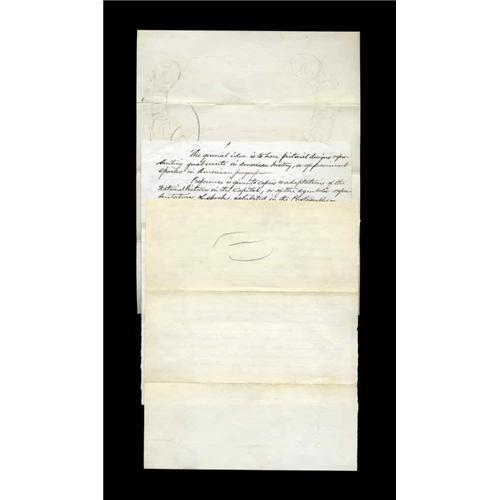 The general idea is to have pictorial designs repre-
senting great events in American history, or of prominent
epochs in American progress.
Preference is given to copies or adaptations of the
National Pictures in the Capitol, or of the symbolic repre-
sentations exhibited in the